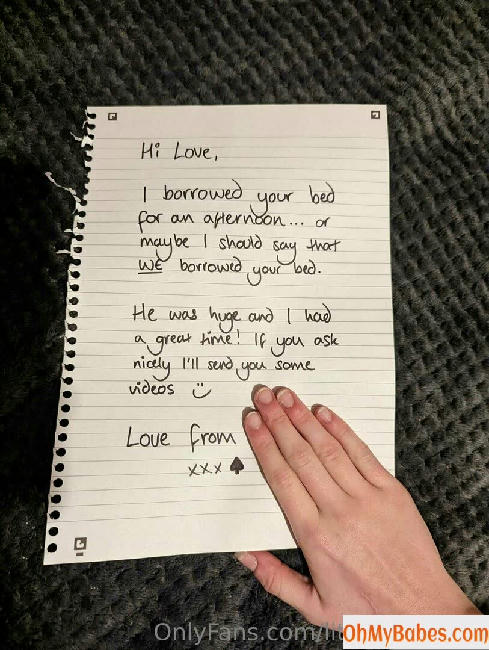 Hi Love,
I borrowed your bed
for an afternoon... or
maybe I should say that
WE borrowed your bed.
He was huge and I had
a great time! If you ask
nicely I'll send you some
videos
Love from
xxx
OnlyFans.com/
OhMyBabes.com